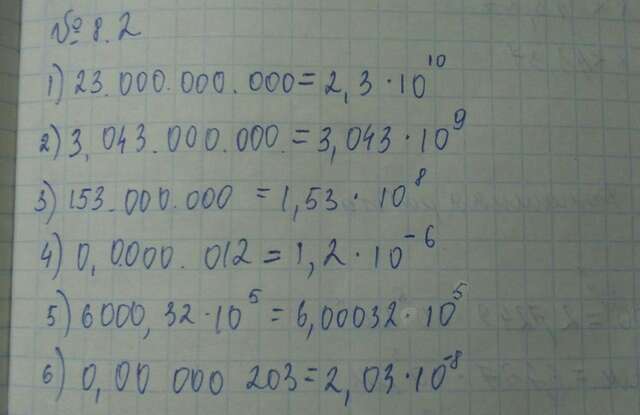 № 8.2
1) 23.000.000.000 = 2,3 · 10¹⁰
2) 3,043.000.000. = 3,043 · 10⁹
3) 153.000.000 = 1,53 · 10⁸
4) 0,0000.012 = 1,2 · 10⁻⁶
5) 6000,32 · 10⁵ = 6,00032 · 10⁵
6) 0,00 000 203 = 2,03 · 10⁻⁸